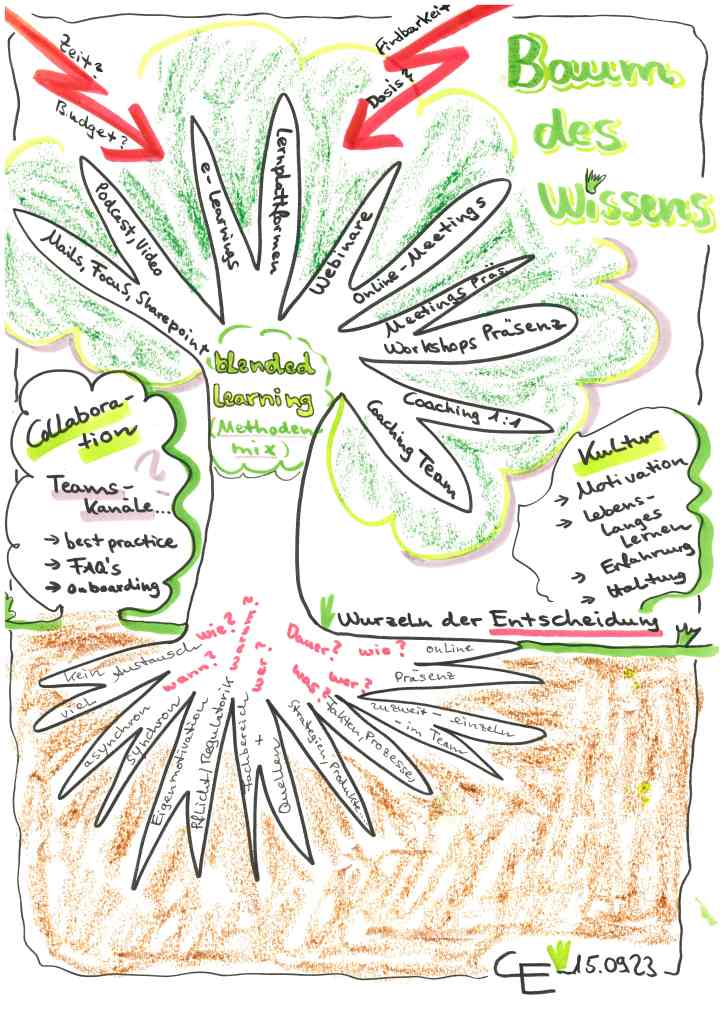 Zeit?
Budget?
Findbarkeit
Dosis?
Baum
des
Wissens
Mails, Focus, Sharepoint
Podcast, Video
e-Learnings
Lernplattformen
Webinare
Online-Meetings
Meetings Präs.
Workshops Präsenz
Coaching 1:1
Coaching Team
blended
Learning
(Methoden
mix)
Collabora-
tion
Teams-
Kanäle...
→ best practice
→ FAQ's
→ onboarding
Kultur
→ Motivation
→ Lebens-
langes
Lernen
→ Erfahrung
→ Haltung
Wurzeln der Entscheidung
wie?
warum?
wann?
wer?
Dauer?
wie?
was?
wer?
kein Austausch
viel
asynchron
synchron
Eigenmotivation
Pflicht/Regulatorik
Fachbereich
+
Quellen
Strategien, Produkte...
Fakten, Prozesse,
zuzweit - einzeln
- im Team
Präsenz
online
CE 15.09.23